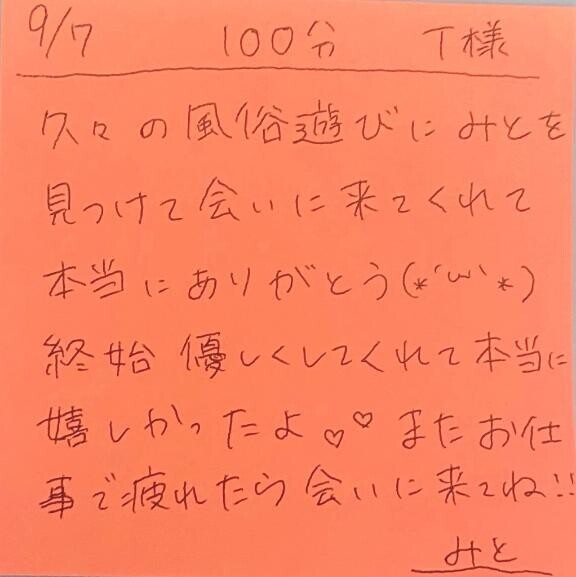 9/7 100分 T様
久々の風俗遊びにみとを
見つけて会いに来てくれて
本当にありがとう(*´ω｀*)
終始優しくしてくれて本当に
嬉しかったよ♡♡またお仕
事で疲れたら会いに来てね!!
みと